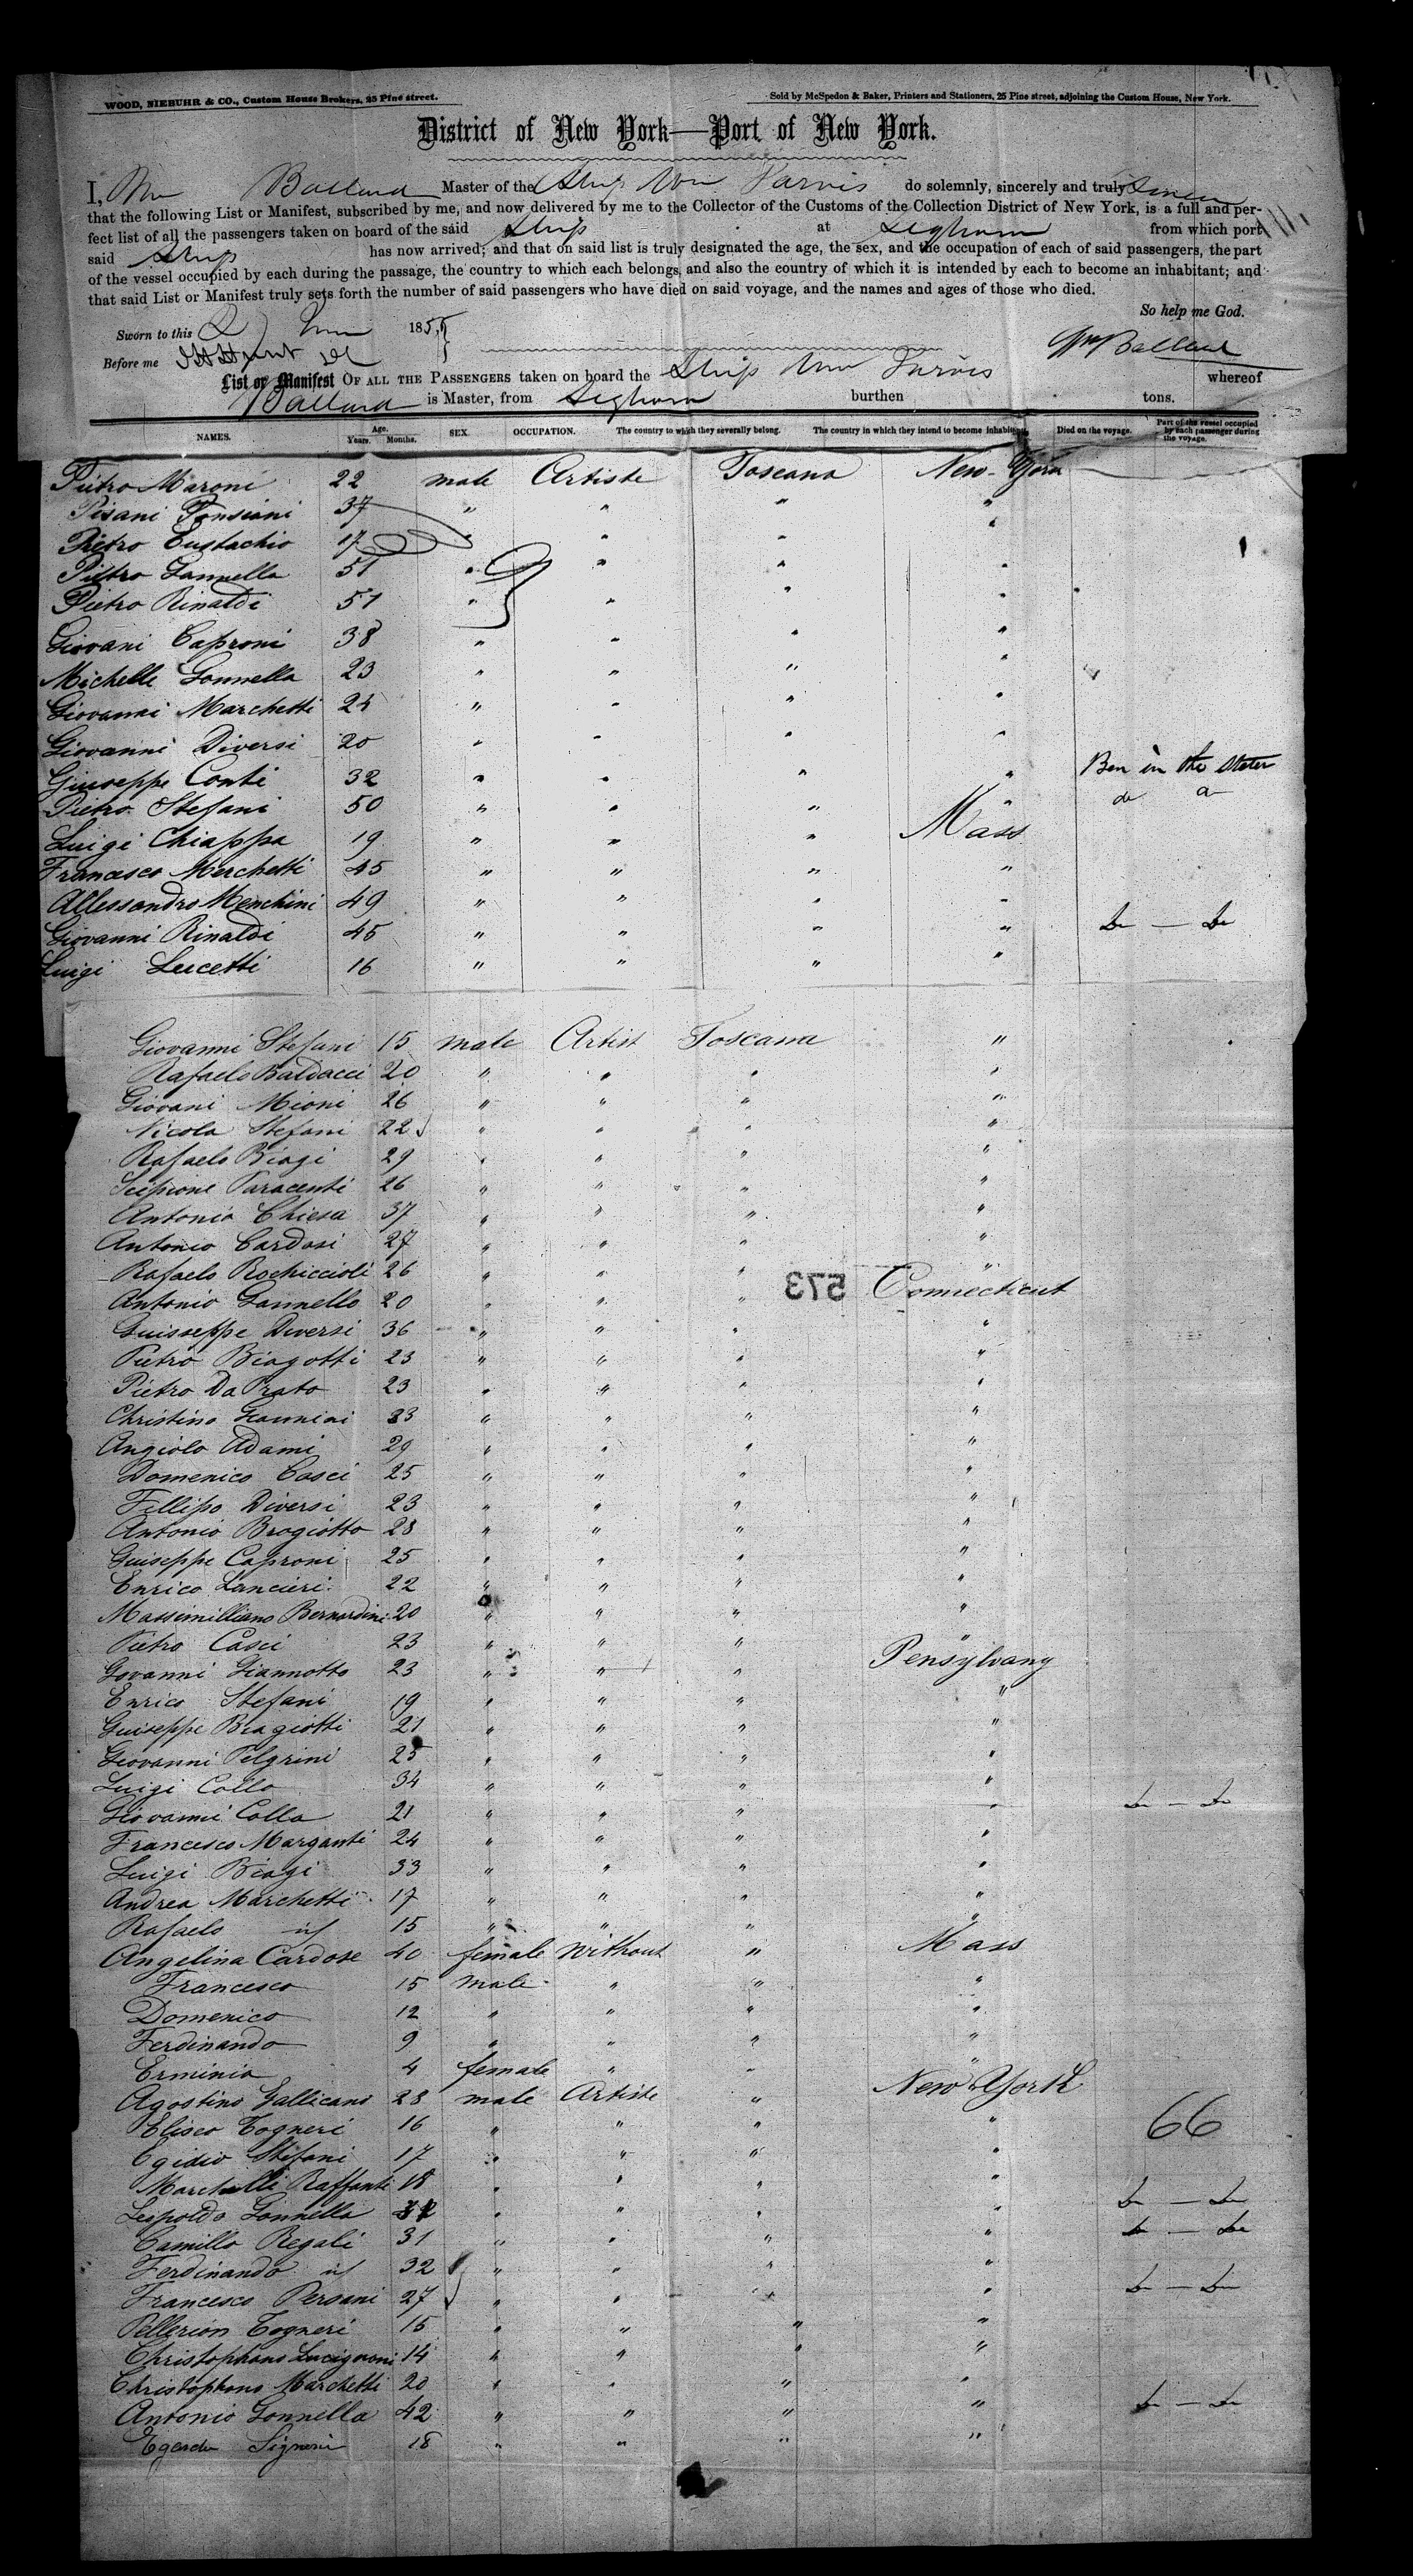 WOOD, NIEBUHR & CO., Custom House Brokers, 25 Pine street.
Sold by McSpedon & Baker, Printers and Stationers, 25 Pine street, adjoining the Custom House, New York.
District of New York—Port of New York.
I, Wm Ballard Master of the Ship Wm Jarvis do solemnly, sincerely and truly
that the following List or Manifest, subscribed by me, and now delivered by me to the Collector of the Customs of the Collection District of New York, is a full and per-
fect list of all the passengers taken on board of the said Ship at Leghorn from which port
said Ship has now arrived; and that on said list is truly designated the age, the sex, and the occupation of each of said passengers, the part
of the vessel occupied by each during the passage, the country to which each belongs, and also the country of which it is intended by each to become an inhabitant; and
that said List or Manifest truly sets forth the number of said passengers who have died on said voyage, and the names and ages of those who died.
So help me God.
Sworn to this 185
Before me
Wm Ballard
List or Manifest OF ALL THE PASSENGERS taken on board the Ship Wm Jarvis whereof
Ballard is Master, from Leghorn burthen tons.
NAMES. Age. Years. Months. SEX. OCCUPATION. The country to which they severally belong. The country in which they intend to become inhabitants. Died on the voyage. Part of the vessel occupied by each passenger during the voyage.
Pietro Maroni 22 male Artiste Toscana New-York
Pisani Ponsiani 37 " " " "
Pietro Eustachio 17 " " " "
Pietro Gannella 51 " " " "
Pietro Rinaldi 51 " " " "
Giovani Caproni 38 " " " "
Michelle Gonnella 23 " " " "
Giovanni Marchetti 24 " " " "
Giovanni Diversi 20 " " " "
Giuseppe Conti 32 " " " " Ben in the states
Pietro Stefani 50 " " " " do
Luigi Chiappa 19 " " " Mass
Francesco Merchetti 45 " " " "
Allessandro Menchini 49 " " " "
Giovanni Rinaldi 45 " " " " Do — Do
Luigi Lucetti 16 " " " "
Giovanni Stefani 15 male Artist Toscana "
Rafaelo Baldacci 20 " " " "
Giovani Mioni 26 " " " "
Nicola Stefani 22 " " " "
Rafaelo Biagi 29 " " " "
Scipione Paracenti 26 " " " "
Antonio Chiesa 37 " " " "
Antonio Cardosi 27 " " " "
Rafaelo Rochiccioli 26 " " " "
573
Antonio Gannello 20 " " " Connecticut
Guisseppe Diversi 36 " " " "
Pietro Biagotti 23 " " " "
Pietro Da Prato 23 " " " "
Christino Giannini 33 " " " "
Angiolo Adami 29 " " " "
Domenico Casci 25 " " " "
Fillipo Diversi 23 " " " "
Antonio Brogiotto 28 " " " "
Guiseppe Caproni 25 " " " "
Enrico Lancieri 22 " " " "
Massimilliano Bernardini 20 " " " "
Pietro Casci 23 " " " "
Govanni Giannotto 23 " " " Pensylvany
Enrico Stefani 19 " " " "
Guiseppe Biagiotti 21 " " " "
Giovanni Pelgrini 25 " " " "
Luigi Collo 34 " " " "
Giovanni Colla 21 " " " " Do — Do
Francesco Marganti 24 " " " "
Luigi Biagi 33 " " " "
Andrea Marchetti 17 " " " "
Rafaelo id 15 " " " "
Angelina Cardose 40 female Without " Mass
Francesco 15 male " " "
Domenico 12 " " " "
Ferdinando 9 " " " "
Erminia 4 female " " "
Agostino Gallicano 28 male Artiste " New York
Elisco Togneri 16 " " " " 66
Egidio Stefani 17 " " " "
Marchelli Raffanti 18 " " " "
Leopoldo Gonnella " " " " Do — Do
Camillo Regali 31 " " " " Do — Do
Ferdinando id 32 " " " "
Francesco Persani 27 " " " " Do — Do
Pellerion Togneri 15 " " " "
Christophano Lucignani 14 " " " "
Christophano Marchetti 20 " " " "
Antonio Gonnella 42 " " " " Do — Do
Signori 18 " " " "